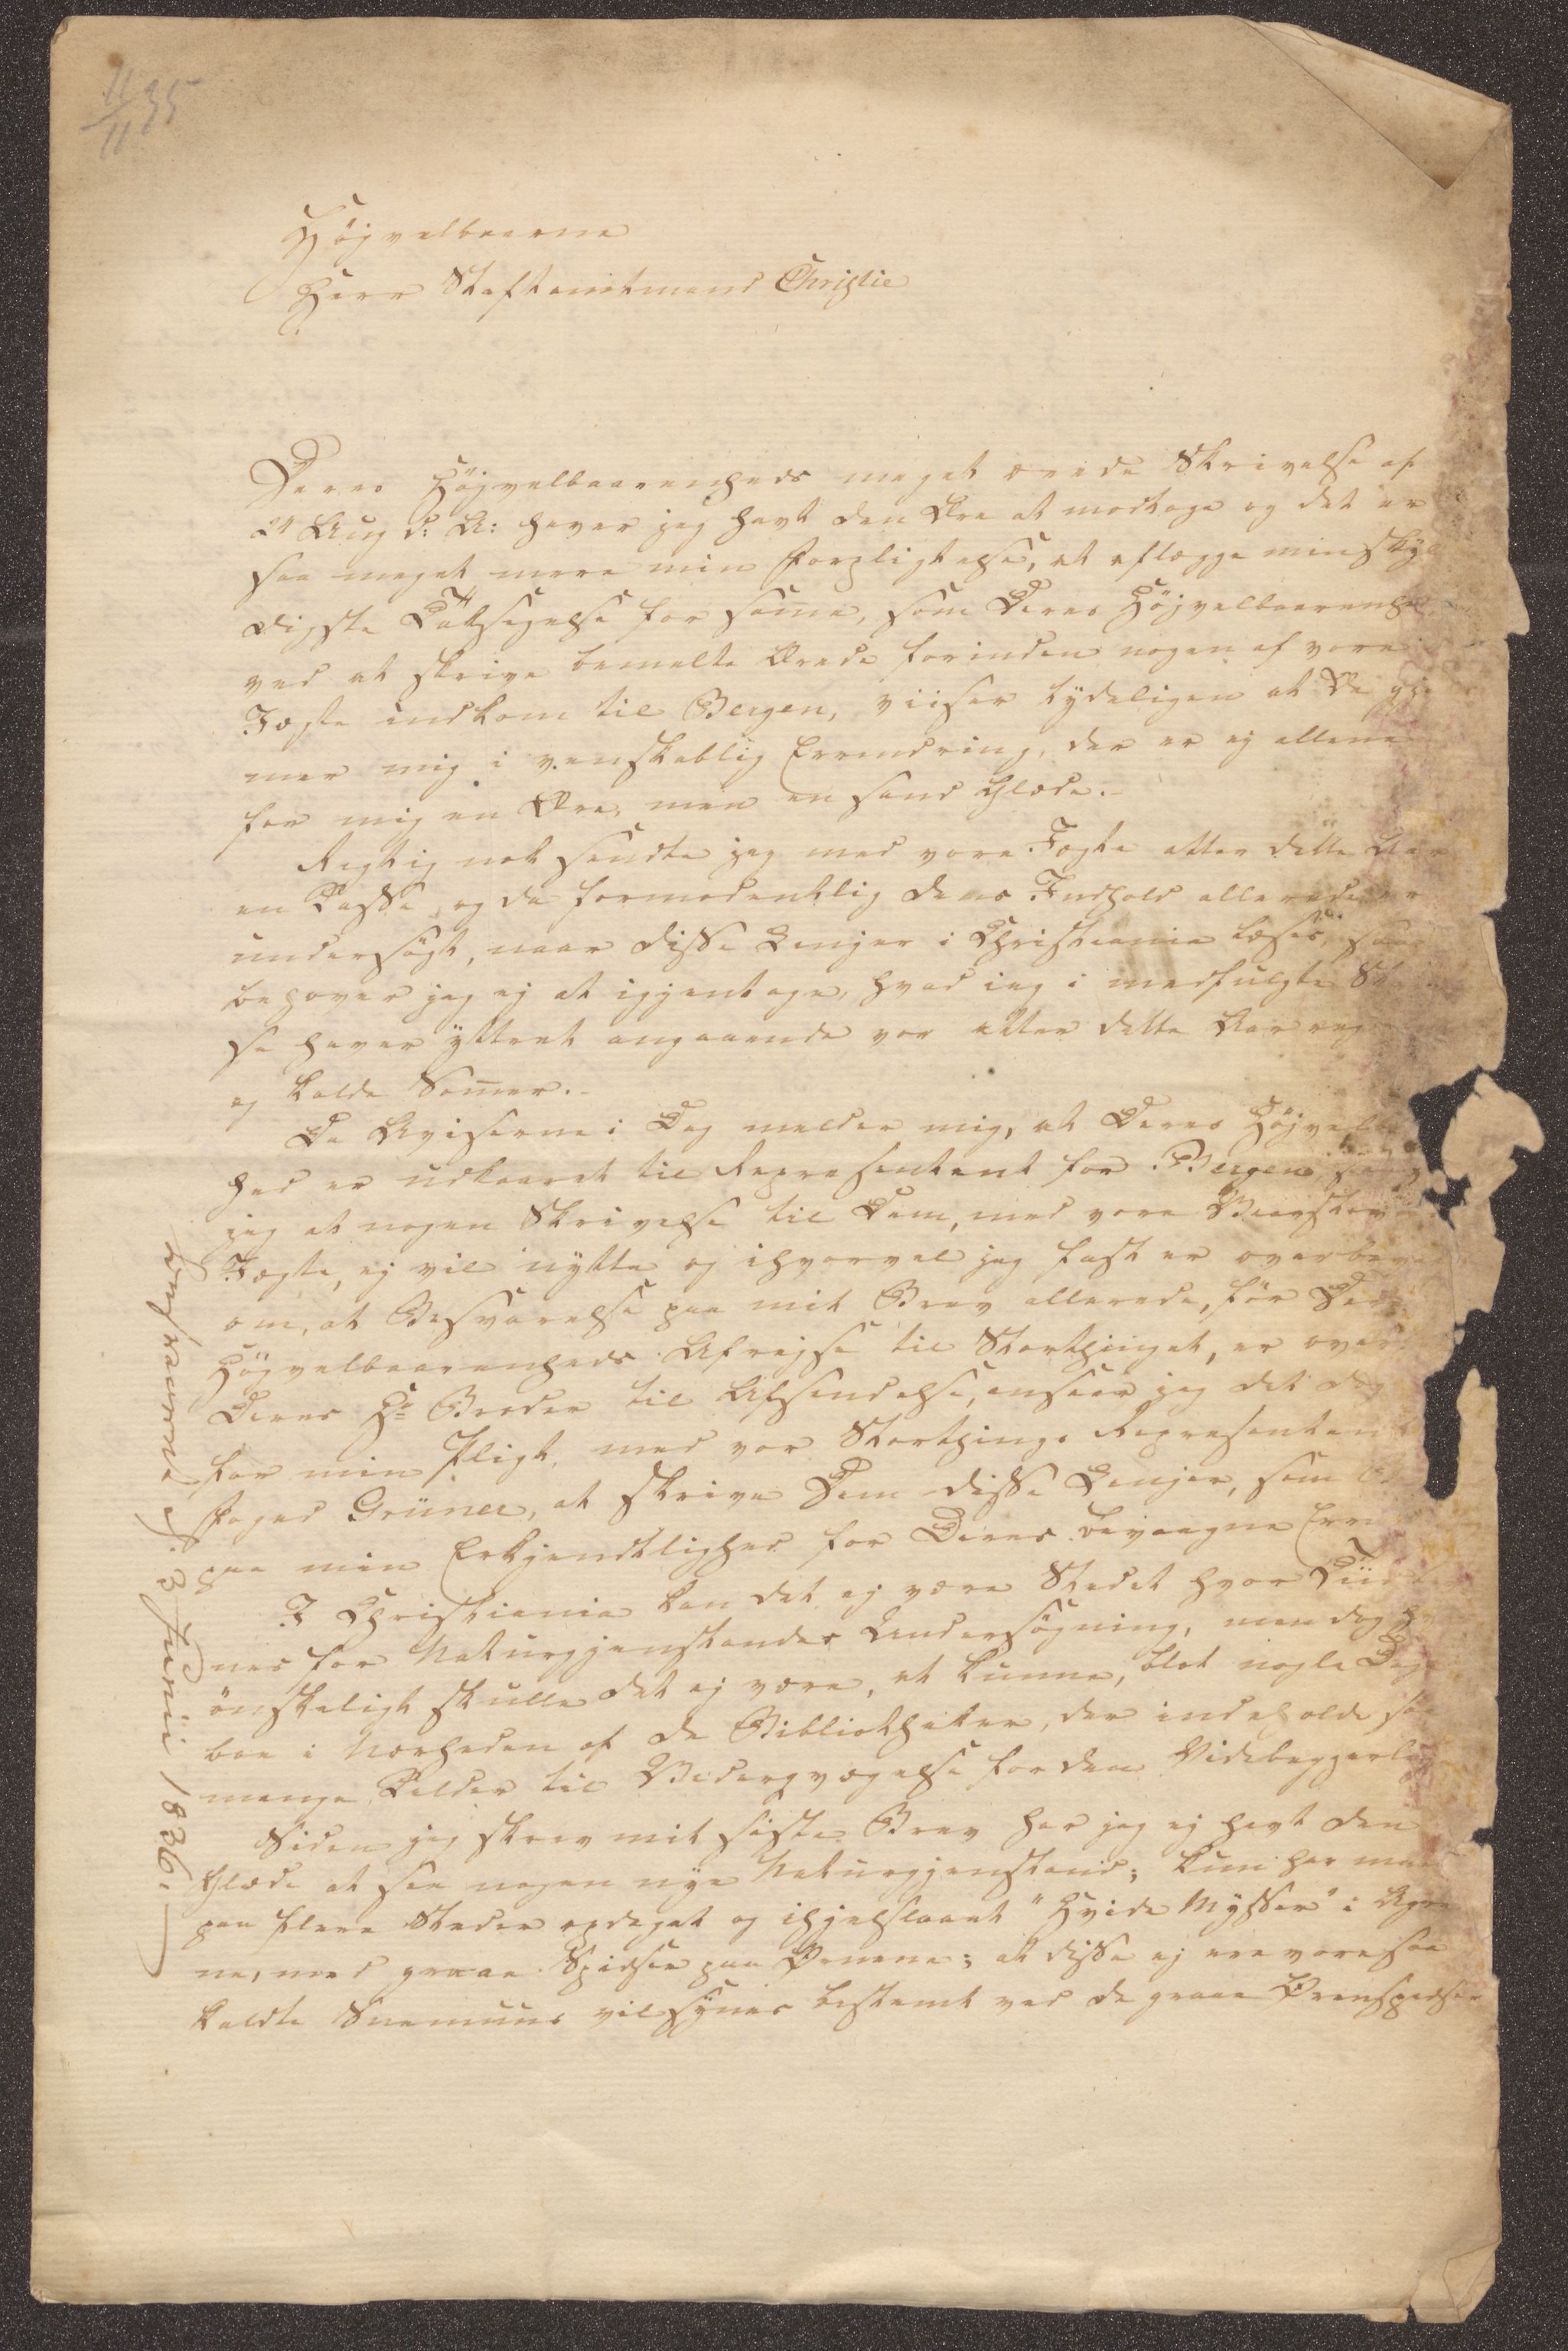 11/11 35
Højvelbaarne
Herr Stiftamtmand Christie
Deres Højvelbaarenheds meget ærede Skrivelse af
24 Aug d: A: haver jeg havt den Ære at modtage og det er
saa meget mere min Forpligtelse, at aflægge min skyl
digste Taksigelse for samme, som Deres Højvelbaarenhed
ved at skrive bemelte Ærede forinden nogen af vore
Jægte indkom til Bergen, viiser tydeligen at De gje
mer mig i venskablig Erindring, der er ej allene
for mig en Ære, men en sand Glæde.-
Rigtig nok sendte jeg med vore Jægte atter dette Aar
en Kasse, og da formodentlig dens Indhold allerede er
undersøgt, naar disse Linjer i Christiania læses, saa
behøver jeg ej at igjentage, hvad jeg i medfulgte Skr
se haver yttret angaaende vor atter dette Aar reg
og kolde Sommer.-
Da Aviserne i Dag melder mig, at Deres Højvelb
hed er udkaaret til Representant for Bergen,
jeg at nogen Skrivelse til Dem, med vore
Jægte, ej vil nytte og ihvorvel jeg fast er overbev
om, at Besvarelse paa mit Brev allerede, før Der
Højvelbaarenheds Afrejse til Storthinget, er over
Deres Hr Broder til Afsendelse, anseer jeg det dog
for min Pligt, med vor Storthings Representant
Foged Grüner, at skrive Dem disse Linjer, som
paa min Erkjendtlighed for Deres bevaagne Erin
I Christiania kan det ej være Stedet hvor
nes for Naturgjenstandes Undersøgning, men dog hv
ønskeligt skulle det ej være, at kunne, blot nogle Dage
boe i Nærheden af de Bibliotheker, der indeholde saa
mange Kilder til Vederqvægelse for den Videbegjerlige
Siden jeg skrev mit sidste Brev har jeg ej havt den
Glæde at see nogen nye Naturgjenstand; kun har man
paa flere Steder opdaget og ihjelslaaet "Hvide Mysser" i Agre
ne, med graae Spidser paa Ørnene; at disse ej ere vore saa
kaldte Sneemuus vil synes bestemt ved de graae Ørenspidser
Besvaret d. 3 Junii 1836.-